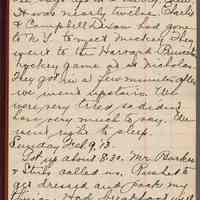 It was nearly twelve. Charlie
& Campbell Dixon had gone
to N.Y. to meet Mickey. They
went to the Harvard Princeton
hockey game at St. Nicholas.
They got in a few minutes after
we went upstairs. We
were very tired so didn't
have very much to say. We
went right to sleep.
Sunday Feb 9, '13.
Got up about 8:30. Mr. Barker
& Stubs called us. Rushed to
get dressed and pack my
things. Had breakfast with